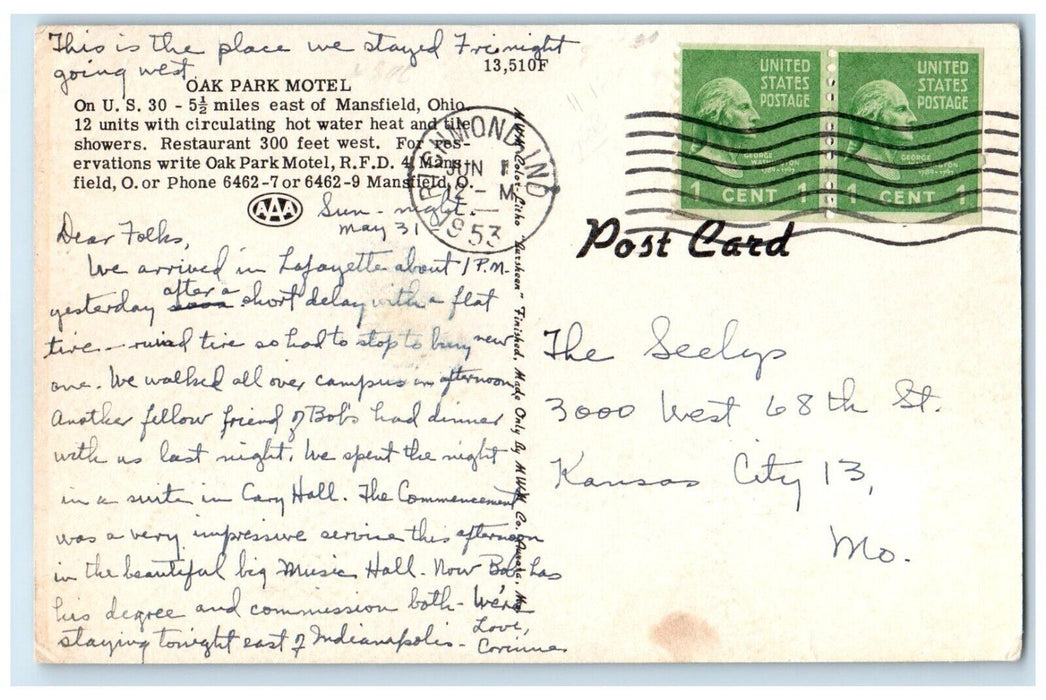 This is the place we stayed Fri. night
going west.
13,510F
OAK PARK MOTEL
On U. S. 30 - 5½ miles east of Mansfield, Ohio.
12 units with circulating hot water heat and tile
showers. Restaurant 300 feet west. For res-
ervations write Oak Park Motel, R.F.D. 4, Mans-
field, O. or Phone 6462-7 or 6462-9 Mansfield, O.
AAA
Sun - night -
May 31
Dear Folks,
We arrived in Lafayette about 1 P.M.
yesterday after a short delay with a flat
tire - ruined tire so had to stop to buy new
one. We walked all over campus in afternoon
Another fellow friend of Bob's had dinner
with us last night. We spent the night
in a suite in Cary Hall. The Commencement
was a very impressive service this afternoon
in the beautiful big Music Hall. Now Bob has
his degree and commission both - We're
staying tonight east of Indianapolis -
Love,
Corinne
MWM Color-Litho "Marsheen" Finished, Made Only By MWM Co. Aurora, Mo.
RICHMOND, IND
JUN 1
12 - M
1953
UNITED
STATES
POSTAGE
GEORGE
WASHINGTON
1789-1797
1 CENT 1
UNITED
STATES
POSTAGE
GEORGE
WASHINGTON
1789-1797
1 CENT 1
Post Card
The Seelys
3000 West 68th St.
Kansas City 13,
Mo.